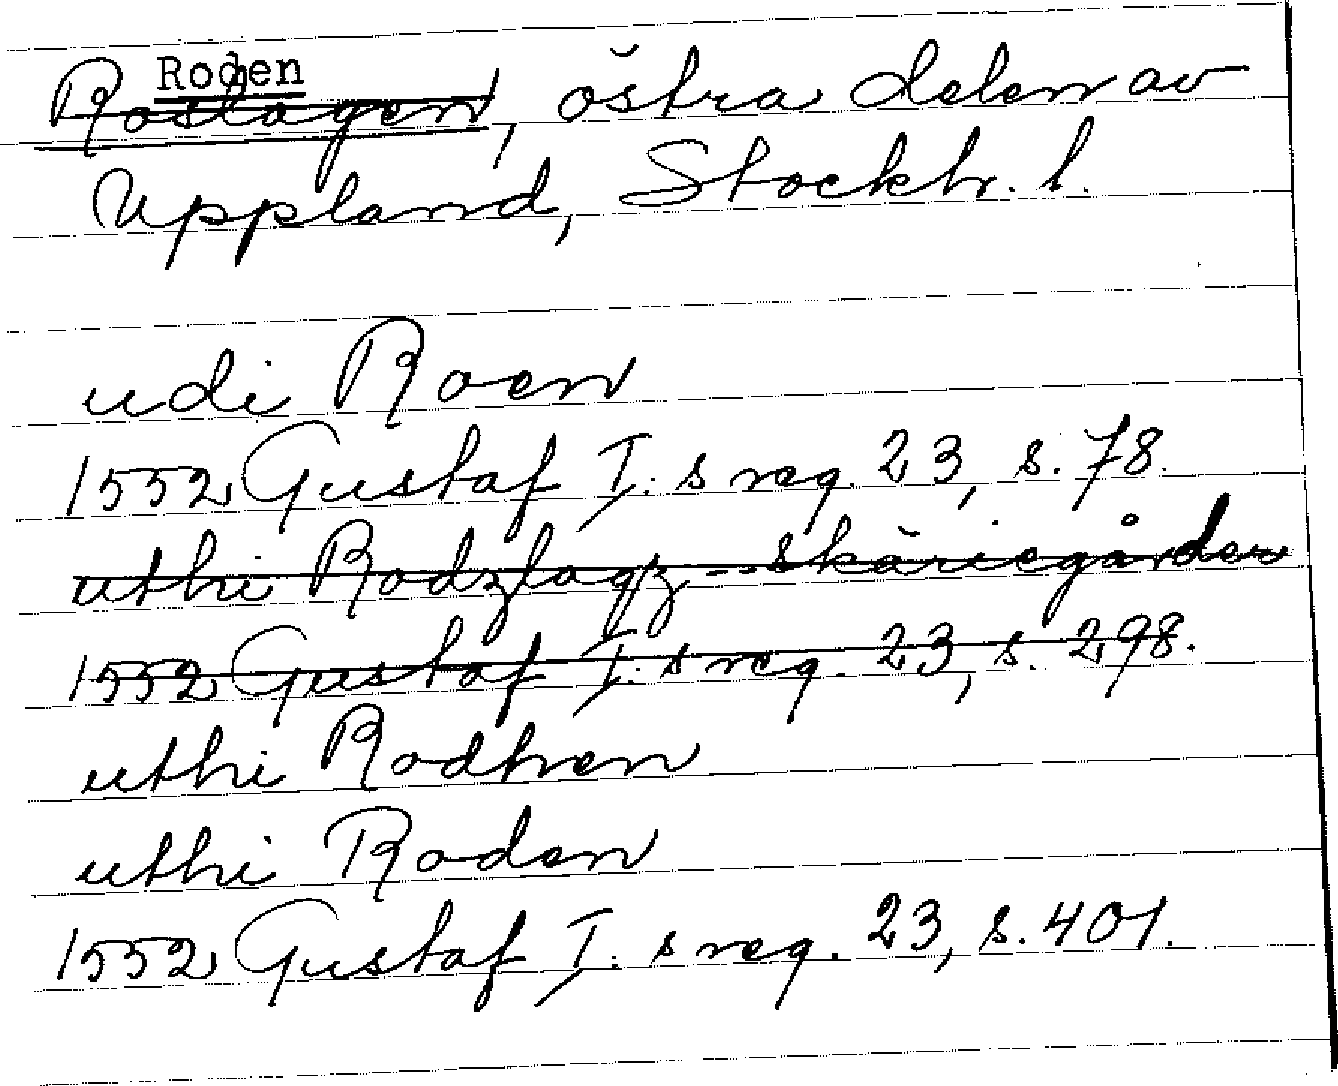 Roden
Roslagen, östra delen av
Uppland, Stockh. l.
udi Roen
1552 Gustaf I: s reg. 23, s. 78.
uthi Rodzlagz -- skäriegården
1552 Gustaf I: s reg. 23, s. 298.
uthi Rodhen
uthi Roden
1552 Gustaf I: s reg. 23, s. 401.